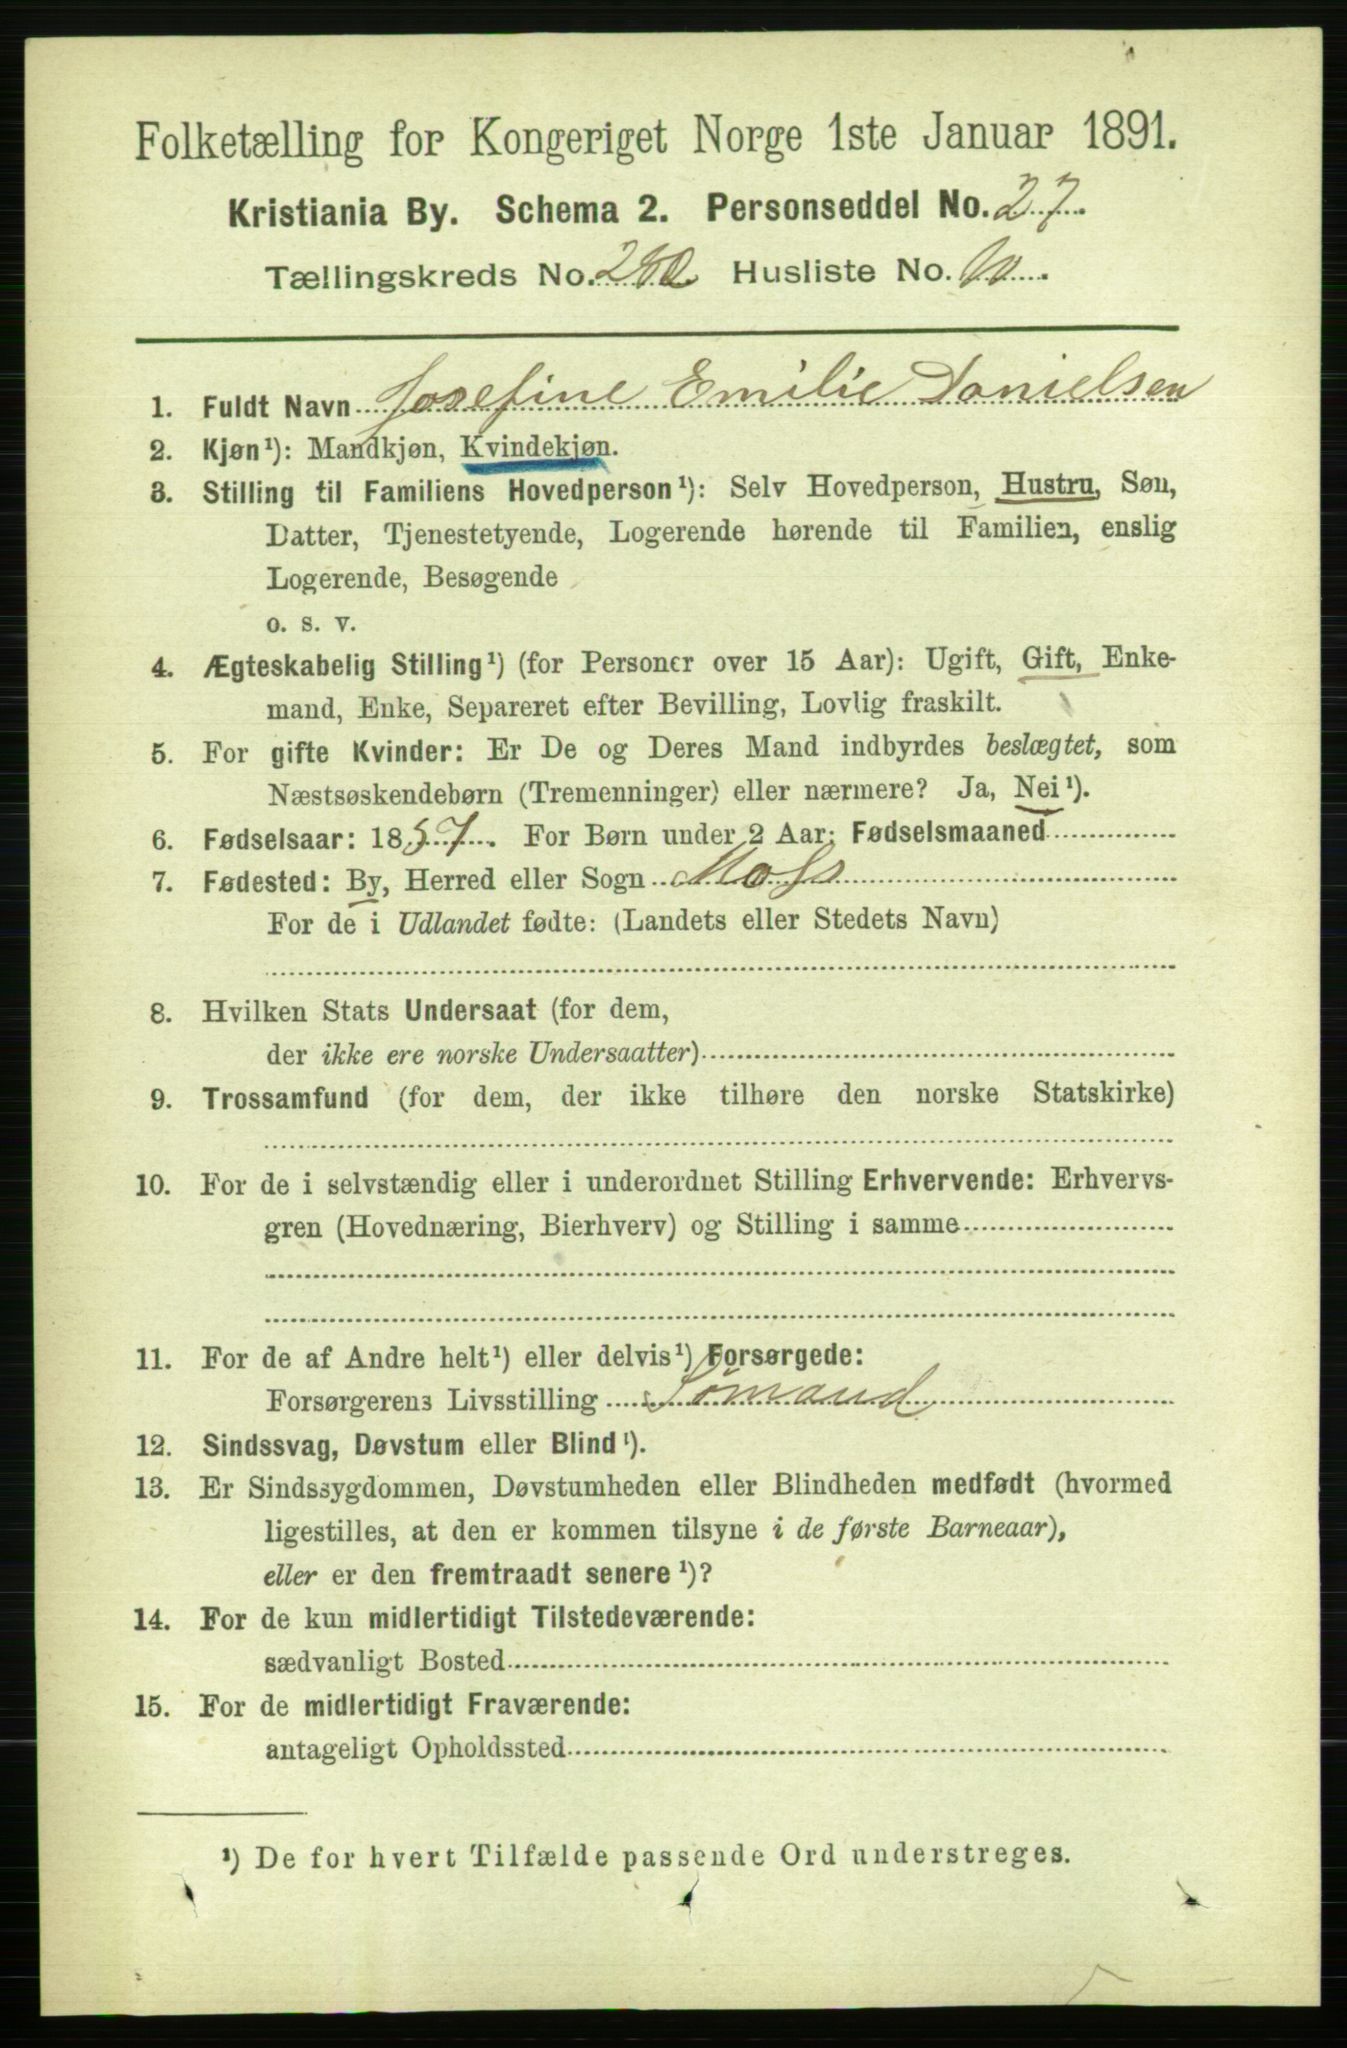 Folketælling for Kongeriget Norge 1ste Januar 1891.
Kristiania By. Schema 2. Personseddel No. 27.
Tællingskreds No. 280 Husliste No.
1. Fuldt Navn Josefine Emilie Danielsen
2. Kjøn¹): Mandkjøn, Kvindekjøn.
3. Stilling til Familiens Hovedperson¹): Selv Hovedperson, Hustru, Søn,
Datter, Tjenestetyende, Logerende hørende til Familien, enslig
Logerende, Besøgende
o. s. v.
4. Ægteskabelig Stilling¹) (for Personer over 15 Aar): Ugift, Gift, Enke-
mand, Enke, Separeret efter Bevilling, Lovlig fraskilt.
5. For gifte Kvinder: Er De og Deres Mand indbyrdes beslægtet, som
Næstsøskendebørn (Tremenninger) eller nærmere? Ja, Nei¹).
6. Fødselsaar: 1857. For Børn under 2 Aar: Fødselsmaaned
7. Fødested: By, Herred eller Sogn Moss
For de i Udlandet fødte: (Landets eller Stedets Navn)
8. Hvilken Stats Undersaat (for dem,
der ikke ere norske Undersaatter)
9. Trossamfund (for dem, der ikke tilhøre den norske Statskirke)
10. For de i selvstændig eller i underordnet Stilling Erhvervende: Erhvervs-
gren (Hovednæring, Bierhverv) og Stilling i samme
11. For de af Andre helt¹) eller delvis¹) Forsørgede:
Forsørgerens Livsstilling Sømand
12. Sindssvag, Døvstum eller Blind¹).
13. Er Sindssygdommen, Døvstumheden eller Blindheden medfødt (hvormed
ligestilles, at den er kommen tilsyne i de første Barneaar),
eller er den fremtraadt senere¹)?
14. For de kun midlertidigt Tilstedeværende:
sædvanligt Bosted
15. For de midlertidigt Fraværende:
antageligt Opholdssted
¹) De for hvert Tilfælde passende Ord understreges.